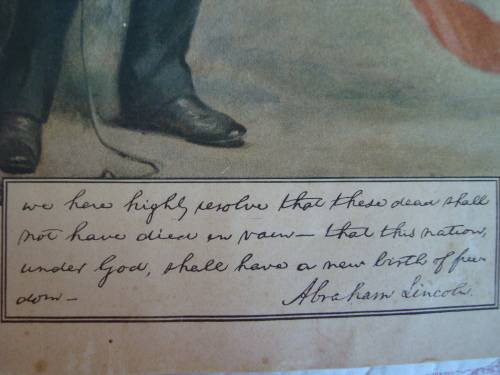 we here highly resolve that these dead shall
not have died in vain — that this nation,
under God, shall have a new birth of free-
dom —
Abraham Lincoln.